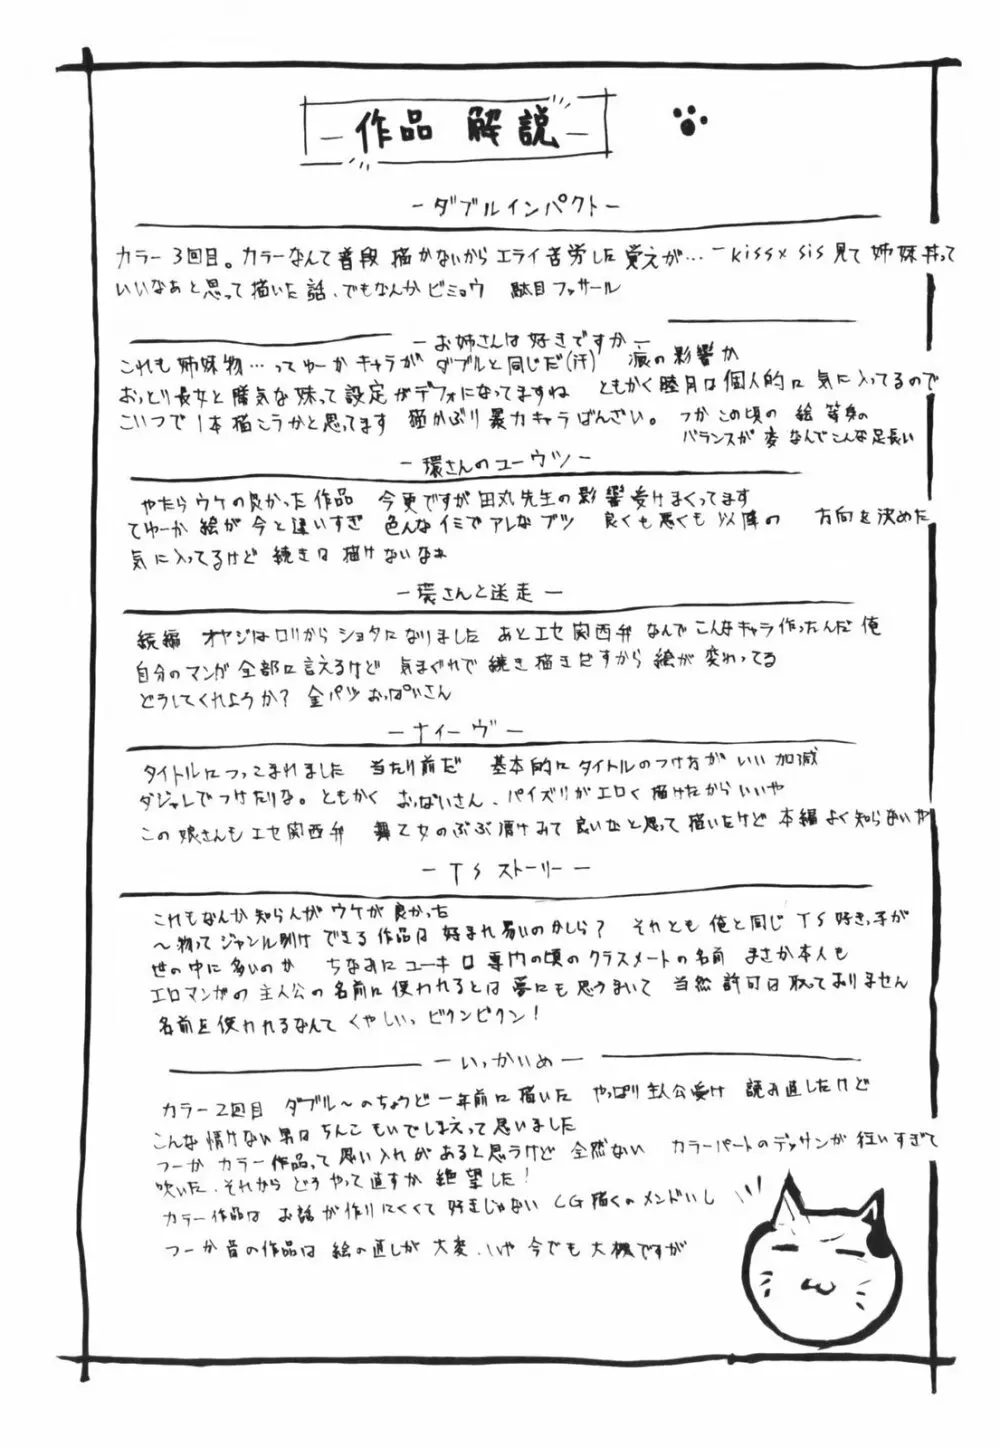 作品 解説
－ダブルインパクト－
カラー3回目。カラーなんて普段 描かないから エライ苦労した 覚えが… －kiss×sis見て 姉妹丼って
いいなぁと思って描いた話、でもなんか ビミョウ 駄目 フッサール
－お姉さんは好きですか－
これも 姉妹物…ってゆーか キャラが ダブルと同じだ(汗) 痕の影響か
おっとり長女と 陽気な妹って設定がデフォになってますね ともかく 睦月は個人的に 気に入ってるので
こいつで 1本 描こうかと思ってます 猫かぶり 暴力キャラばんざい。 つか この頃の 絵 等身の
バランスが 変 なんでこんな足長い
－環さんのユーウツ－
やたらウケの良かった作品 今更ですが 田丸先生の影響受けまくってます
てゆーか 絵が 今と違いすぎ 色んなイミで アレなブツ 良くも悪くも 以降の 方向を決めた
気に入ってるけど 続きは 描けないなぁ
－環さんと迷走－
続編 オヤジはロリから ショタになりました あとエセ関西弁 なんで こんなキャラ作ったんだ 俺
自分のマンガ 全部に言えるけど 気まぐれで 続き 描きだすから 絵が 変わってる
どうしてくれようか? 金パツ おっぱいさん
－ナイーヴ－
タイトルにつっこまれました 当たり前だ 基本的に タイトルのつけ方が いい加減
ダジャレでつけたりな。ともかく おっぱいさん、パイズリが エロく 描けたからいいや
この娘さんも エセ関西弁 舞乙女のぶぶ漬けみて 良いなと思って 描いたけど 本編 よく知らないや
－TSストーリー－
これもなんか知らんが ウケが 良かった
～物って ジャンル別け できる 作品は 好まれ易いのかしら? それとも 俺と同じ TS好きっ手が
世の中に多いのか ちなみに ユーキ は 専門の頃の クラスメートの名前 まさか本人も
エロマンガの 主人公の 名前に 使われるとは 夢にも思うまいて 当然 許可は 取っておりません
名前を 使われるなんて くやしいっ、ビクンビクン!
－いっかいめ－
カラー2回目 ダブル～のちょうど一年前に 描いた やっぱり 主人公受け 読み直したけど
こんな 情けない 男は ちんこ もいでしまえって思いました
つーか カラー作品って 思い入れが あると思うけど 全然ない カラーパートのデッサンが 狂いすぎて
吹いた、それから どうやって直すか 絶望した!
カラー作品は お話が 作りにくくて 好きじゃない CG描くのメンドいし
つーか 昔の作品は 絵の直しが 大変、いや 今でも 大概ですが